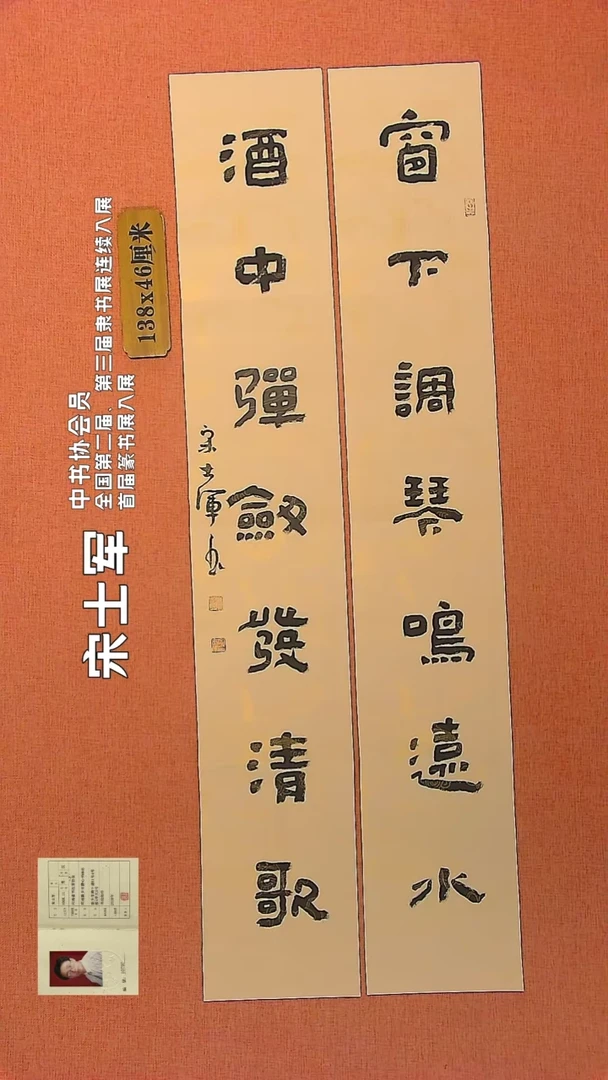 窗下調琴鳴遠水
酒中彈劍發清歌
宋士軍書
138x46厘米
中书协会员
全国第二届、第三届隶书展连续入展
首届篆书展入展
宋士军